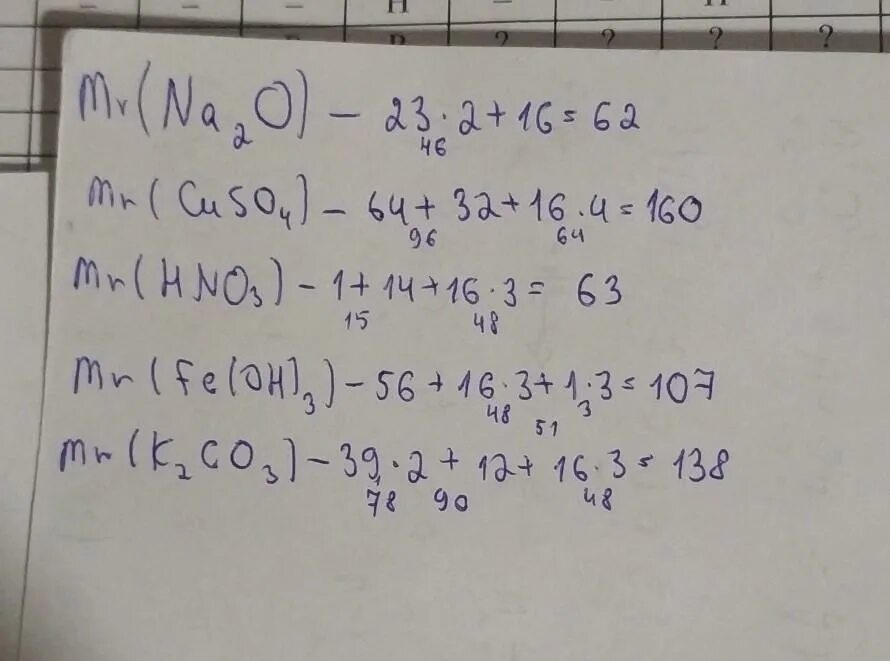 H H
P ? ? ? ?
Mr(Na₂O) – 23·2+16=62
46
Mr(CuSO₄) – 64+32+16·4=160
96 64
Mr(HNO₃) – 1+14+16·3= 63
15 48
Mr(Fe(OH)₃) – 56+16·3+1·3=107
48 3
51
Mr(K₂CO₃) – 39·2+12+16·3=138
78 90 48